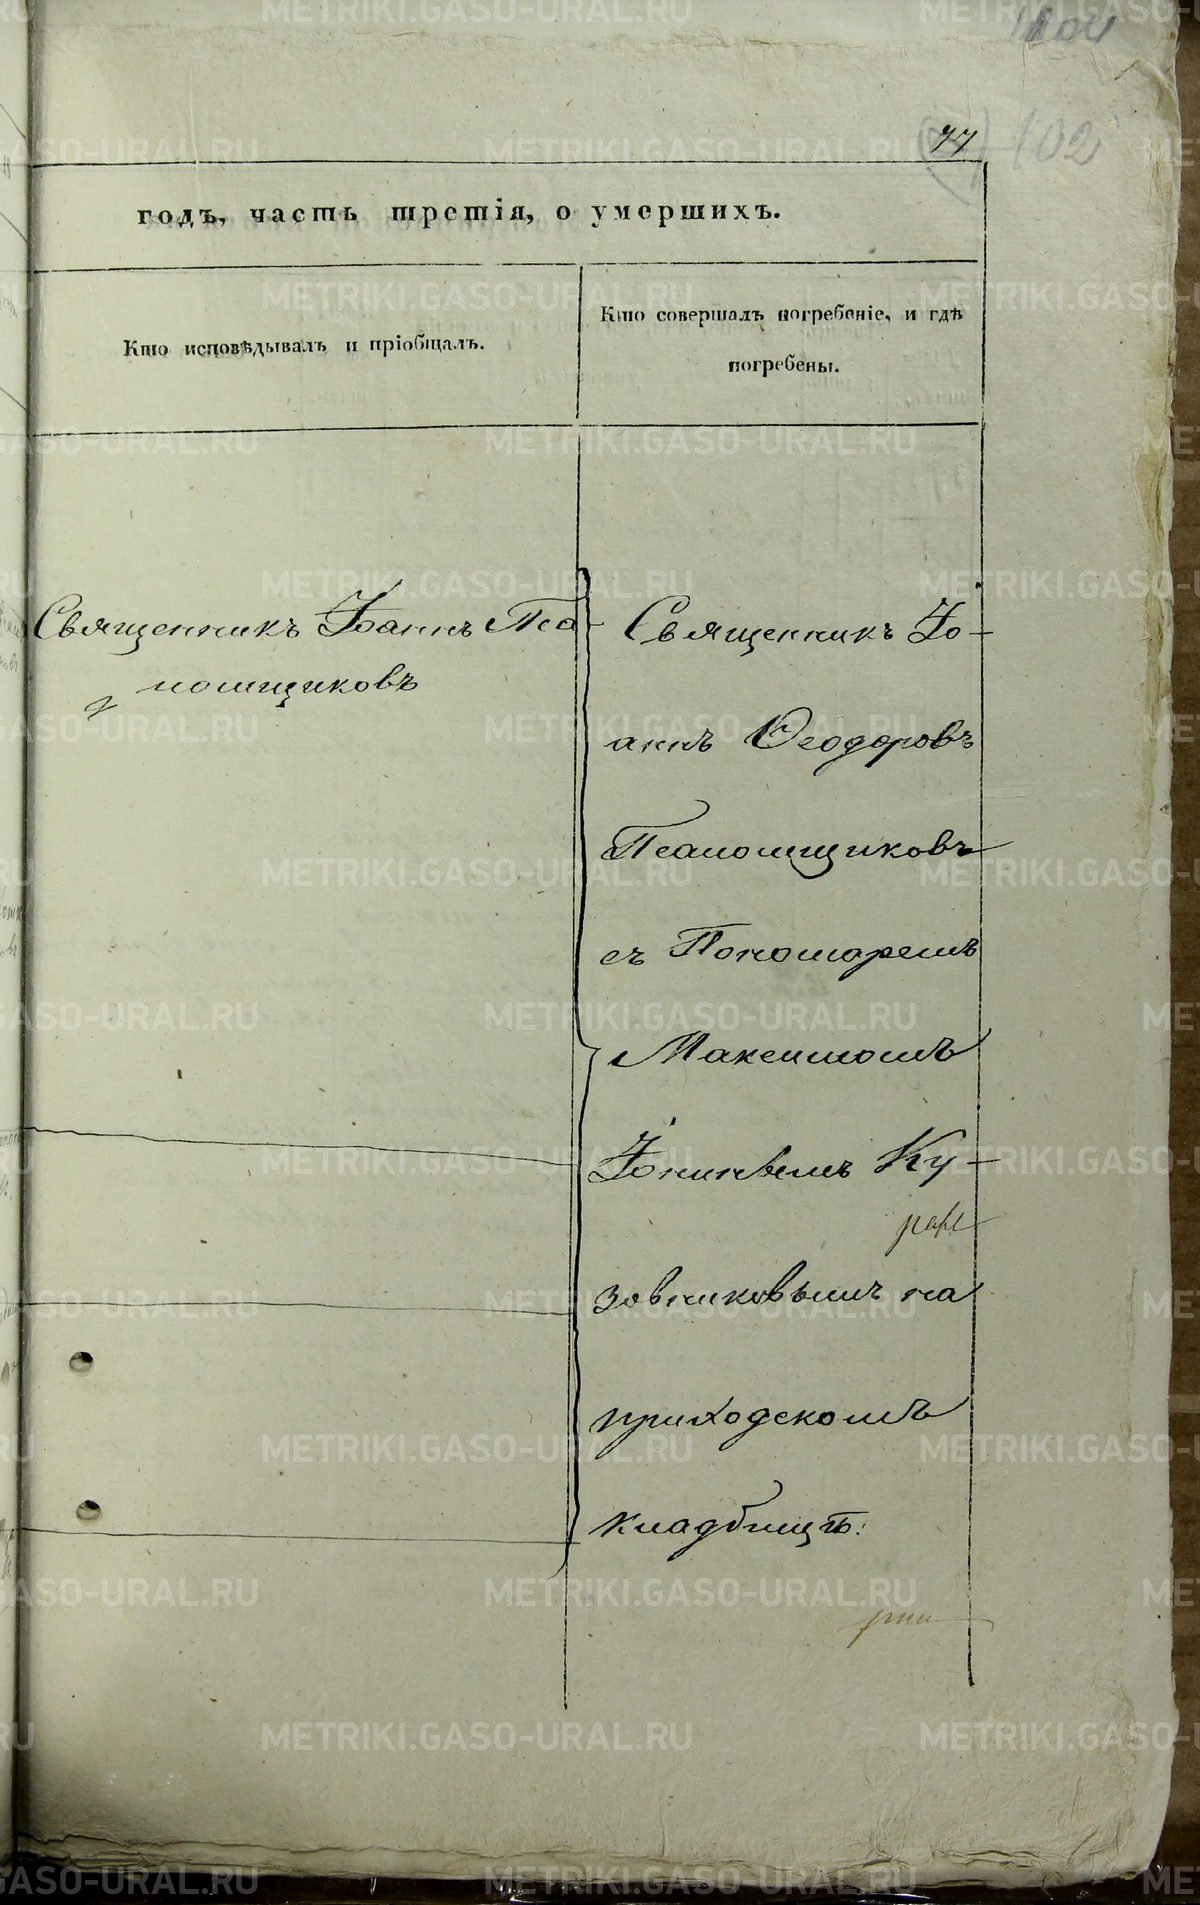 77
102
годъ, часть третія, о умершихъ.
Кто исповѣдывалъ и пріобщалъ.
Кто совершалъ погребеніе, и гдѣ
погребены.
Священникъ Іоаннъ Пса-
ломщиковъ
Священникъ Іо-
аннъ Ѳеодоровъ
Псаломщиковъ
съ Пономаремъ
Максимомъ
Іонинымъ Ку-
зовниковымъ на
приходскомъ
кладбищѣ.
METRIKI.GASO-URAL.RU